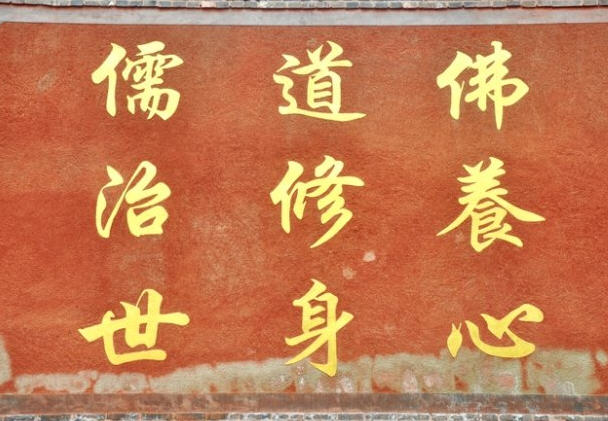 佛養心
道修身
儒治世